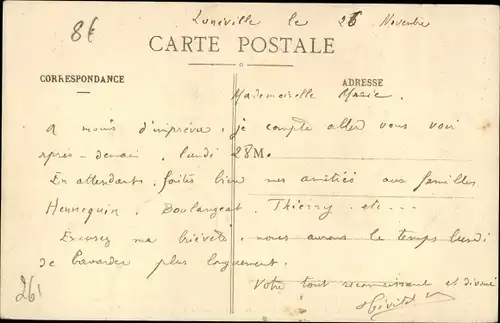 8€
Luneville le 26 Novembre
CARTE POSTALE
CORRESPONDANCE
ADRESSE
Mademoiselle Marie.
A moins d'imprévu, je compte aller vous voir
après-demain, lundi 28 M.
En attendant, faites bien mes amitiés aux familles
Hennequin, Boulangeat, Thierry, etc...
Excusez ma brièveté, nous aurons le temps lundi
de bavarder plus longuement.
Votre tout reconnaissant et dévoué
261